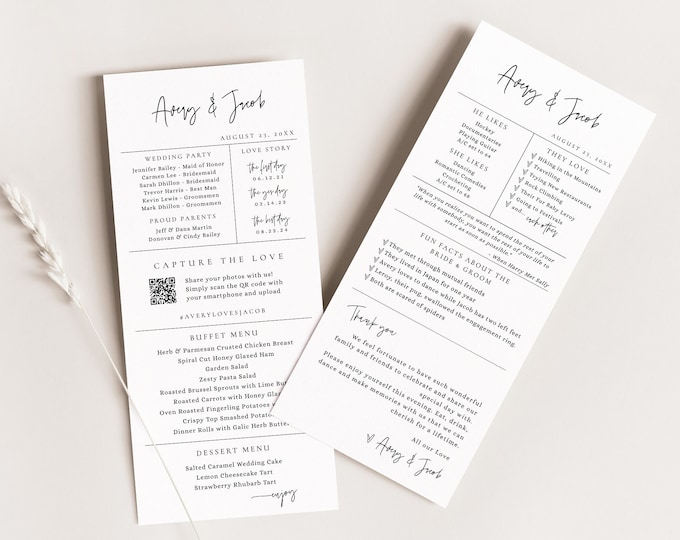 Avery & Jacob
AUGUST 23, 20XX
WEDDING PARTY
Jennifer Bailey - Maid of Honor
Carmen Lee - Bridesmaid
Sarah Dhillon - Bridesmaid
Trevor Harris - Best Man
Kevin Lewis - Groomsmen
Mark Dhillon - Groomsmen
PROUD PARENTS
Jeff & Dana Martin
Donovan & Cindy Bailey
LOVE STORY
the first day
06.12.23
the yes day
02.14.23
the best day
08.23.24
CAPTURE THE LOVE
Share your photos with us!
Simply scan the QR code with
your smartphone and upload
#AVERYLOVESJACOB
BUFFET MENU
Herb & Parmesan Crusted Chicken Breast
Spiral Cut Honey Glazed Ham
Garden Salad
Zesty Pasta Salad
Roasted Brussel Sprouts with Lime
Roasted Carrots with Honey
Oven Roasted Fingerling Potatoes
Crispy Top Smashed Potatoes
Dinner Rolls with Galic Herb Butter
DESSERT MENU
Salted Caramel Wedding Cake
Lemon Cheesecake Tart
Strawberry Rhubarb Tart
enjoy
Avery & Jacob
AUGUST 23, 20XX
HE LIKES
Hockey
Documentaries
Playing Guitar
A/C set to
SHE LIKES
Dancing
Romantic Comedies
Crocheting
A/C set to
THEY LOVE
Hiking in the Mountains
Travelling
Trying New Restaurants
Rock Climbing
Their Fur Baby, Leroy
Going to Festivals
and... each other
"When you realize you want to spend the rest of your
life with somebody, you want the rest of your life to
start as soon as possible."
- When Harry Met Sally
FUN FACTS ABOUT THE
BRIDE & GROOM
They met through mutual friends
They lived in Japan for one year
Avery loves to dance while Jacob has two left feet
Leroy, their pug, swallowed the engagement ring.
Both are scared of spiders
Thank you
We feel fortunate to have such wonderful
family and friends to celebrate and share our
special day with.
Please enjoy yourself this evening. Eat, drink,
dance and make memories with us that we can
cherish for a lifetime.
All our Love
Avery & Jacob